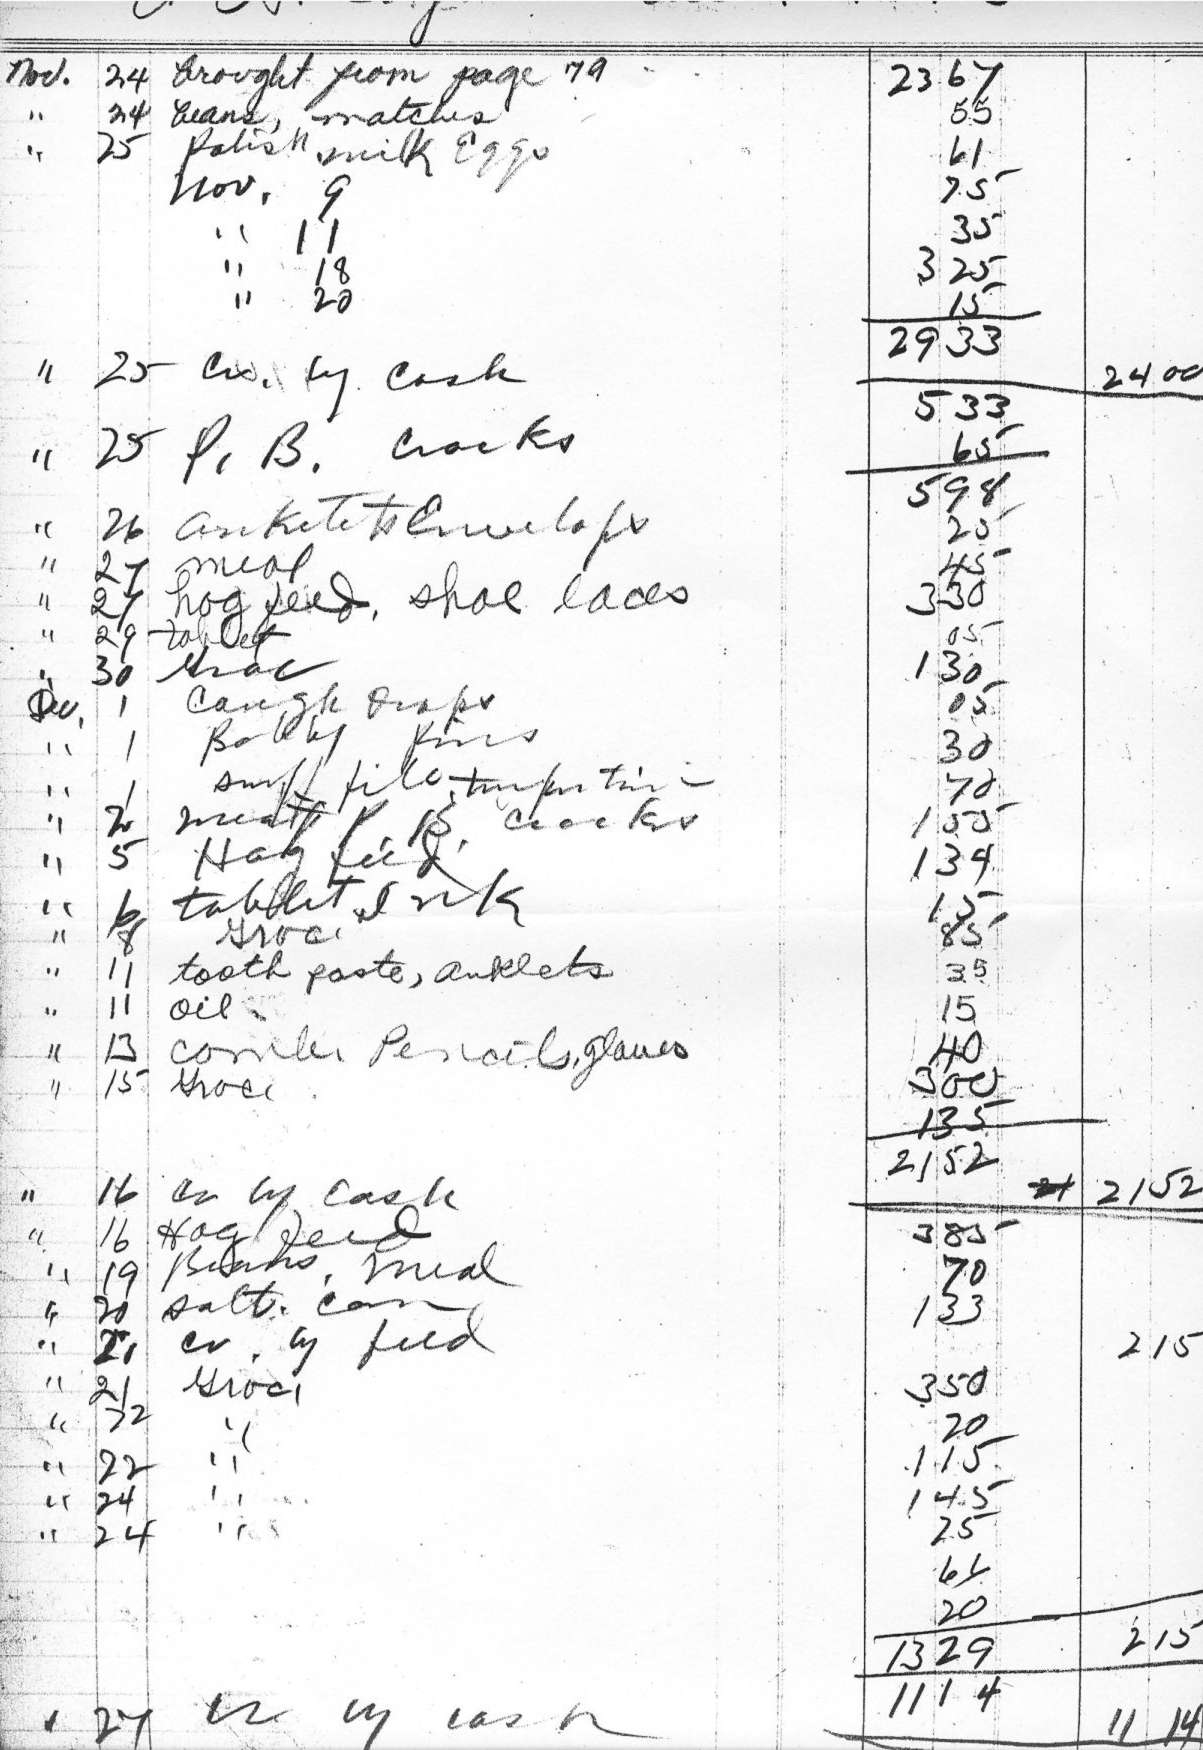 Nov. 24 brought from page 79 23 67
" 24 beans, matches 55
" 25 Polish milk Eggs 61
Nov. 9 75
" 11 35
" 18 3 25
" 20 15
29 33
" 25 cr. by cash 24 00
5 33
" 25 P. B. Cracks 65
5 98
" 26 Envelops 25
" 27 meal 45
" 27 hog feed, shoe laces 3 30
" 29 tablet 05
" 30 Groc 1 30
Dec. 1 Cough Drops 05
" 1 Bobby Pins 30
" 1 snuff file, 70
" 2 meat P. B. cracks 1 55
" 5 Hog feed 1 34
" 6 tablet Ink 15
" 8 Groc. 85
" 11 tooth paste, anklets 35
" 11 oil 15
" 13 combs Pencils, gloves 40
" 15 Groc. 3 00
1 35
21 52
" 16 cr by cash 21 52
" 16 Hog feed 3 85
" 19 Beans, meal 70
" 20 salt. can 1 33
" 21 cr. by feed 2 15
" 21 Groc. 3 50
" 22 " 20
" 22 " 1 15
" 24 " 1 45
" 24 " 25
61
20
13 29 2 15
11 14
" 27 cr by cash 11 14